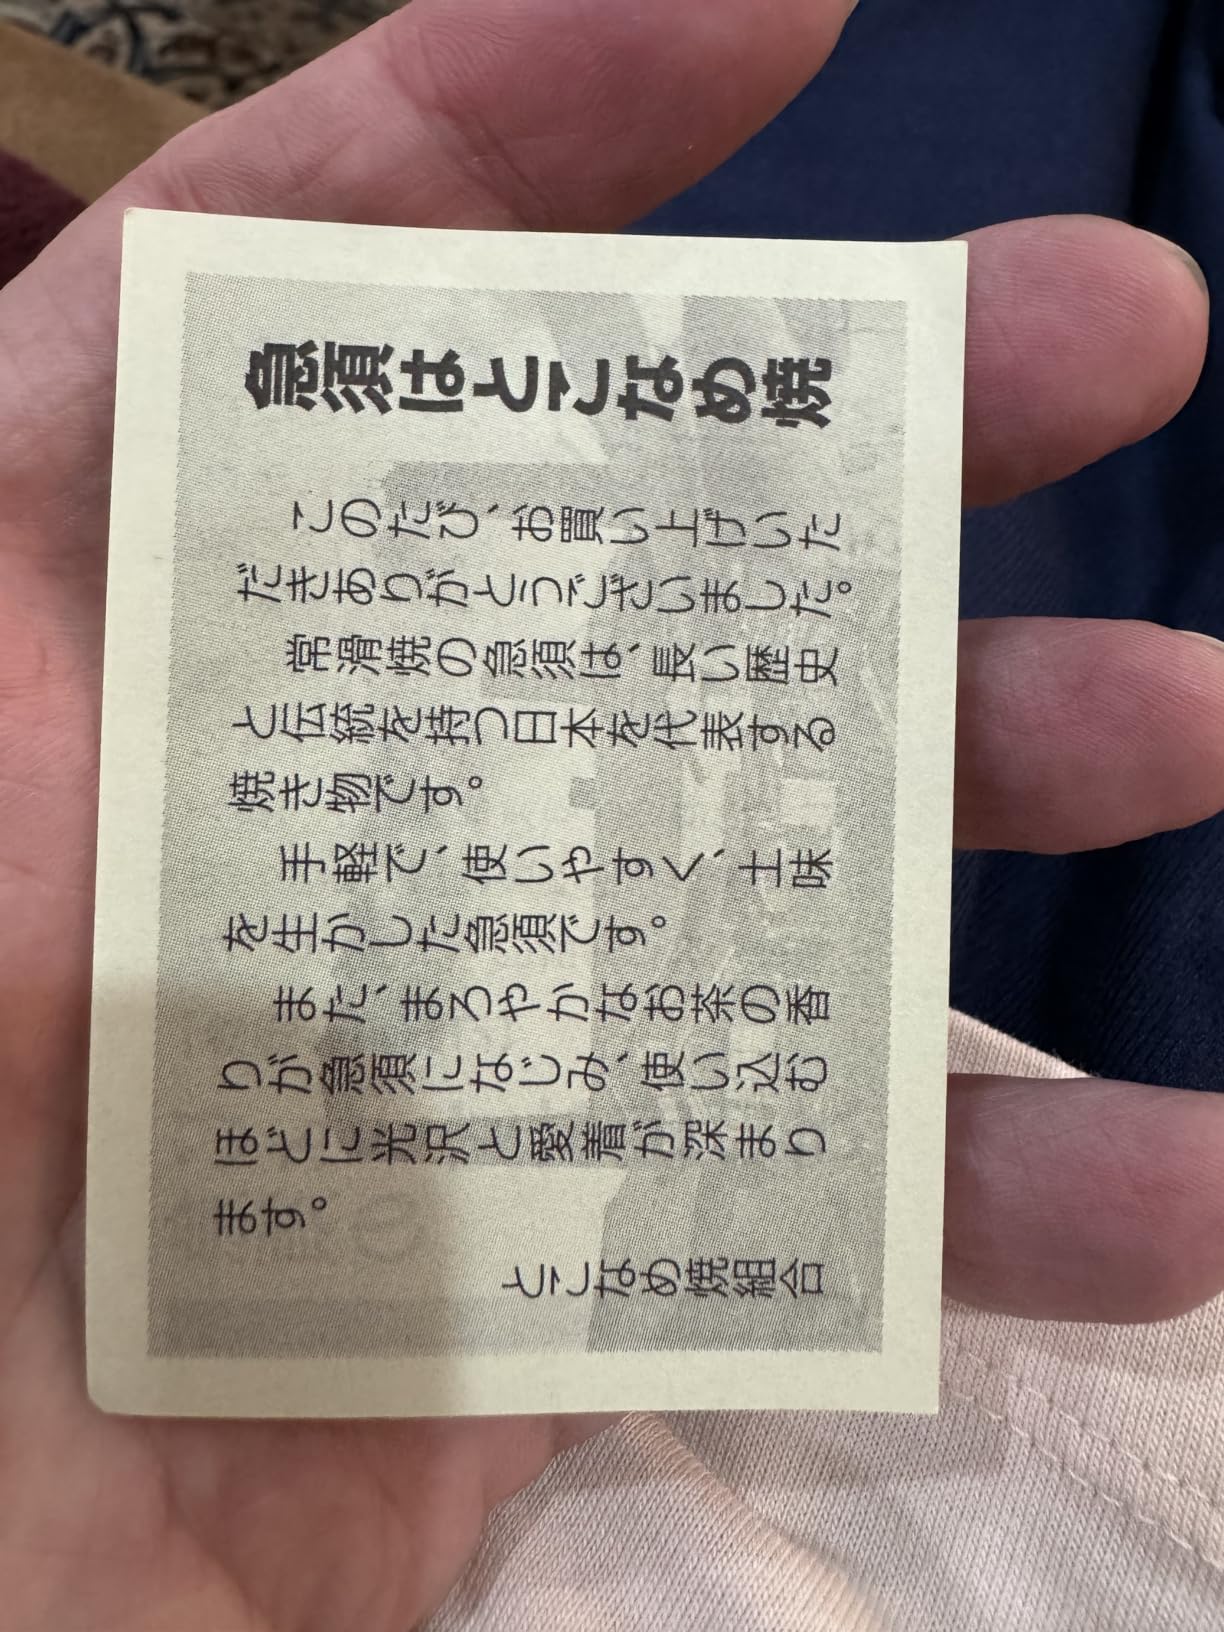 急須はとこなめ焼
このたび、お買い上げいた
だきありがとうございました。
常滑焼の急須は、長い歴史
と伝統を持つ日本を代表する
焼き物です。
手軽で、使いやすく、土味
を生かした急須です。
また、まろやかなお茶の香
りが急須になじみ、使い込む
ほどに光沢と愛着が深まり
ます。
とこなめ焼組合